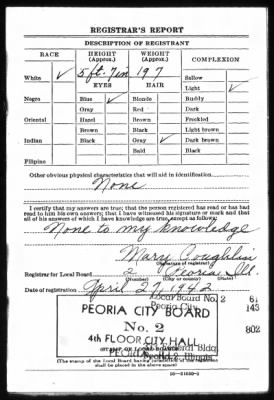 REGISTRAR'S REPORT
DESCRIPTION OF REGISTRANT
RACE HEIGHT (Approx.) WEIGHT (Approx.) COMPLEXION
White ✓ 5 ft. 7 in 197 Sallow
EYES HAIR Light ✓
Negro Blue ✓ Blonde Ruddy
Gray Red Dark
Oriental Hazel Brown Freckled
Brown Black Light brown
Indian Black Gray ✓ Dark brown
Bald Black
Filipino
Other obvious physical characteristics that will aid in identification
None
I certify that my answers are true; that the person registered has read or has had
read to him his own answers; that I have witnessed his signature or mark and that
all of his answers of which I have knowledge are true, except as follows:
None to my knowledge
Mary Coughlin
(Signature of registrar)
Registrar for Local Board 2 Peoria Ill.
(Number) (City or county) (State)
Date of registration April 27, 1942
Local Board No. 2 61
Peoria City 143
PEORIA CITY BOARD
No. 2 802
4th FLOOR CITY HALL
(STAMP OF LOCAL BOARD)
(The stamp of the Local Board having jurisdiction of the registrant
shall be placed in the above space)